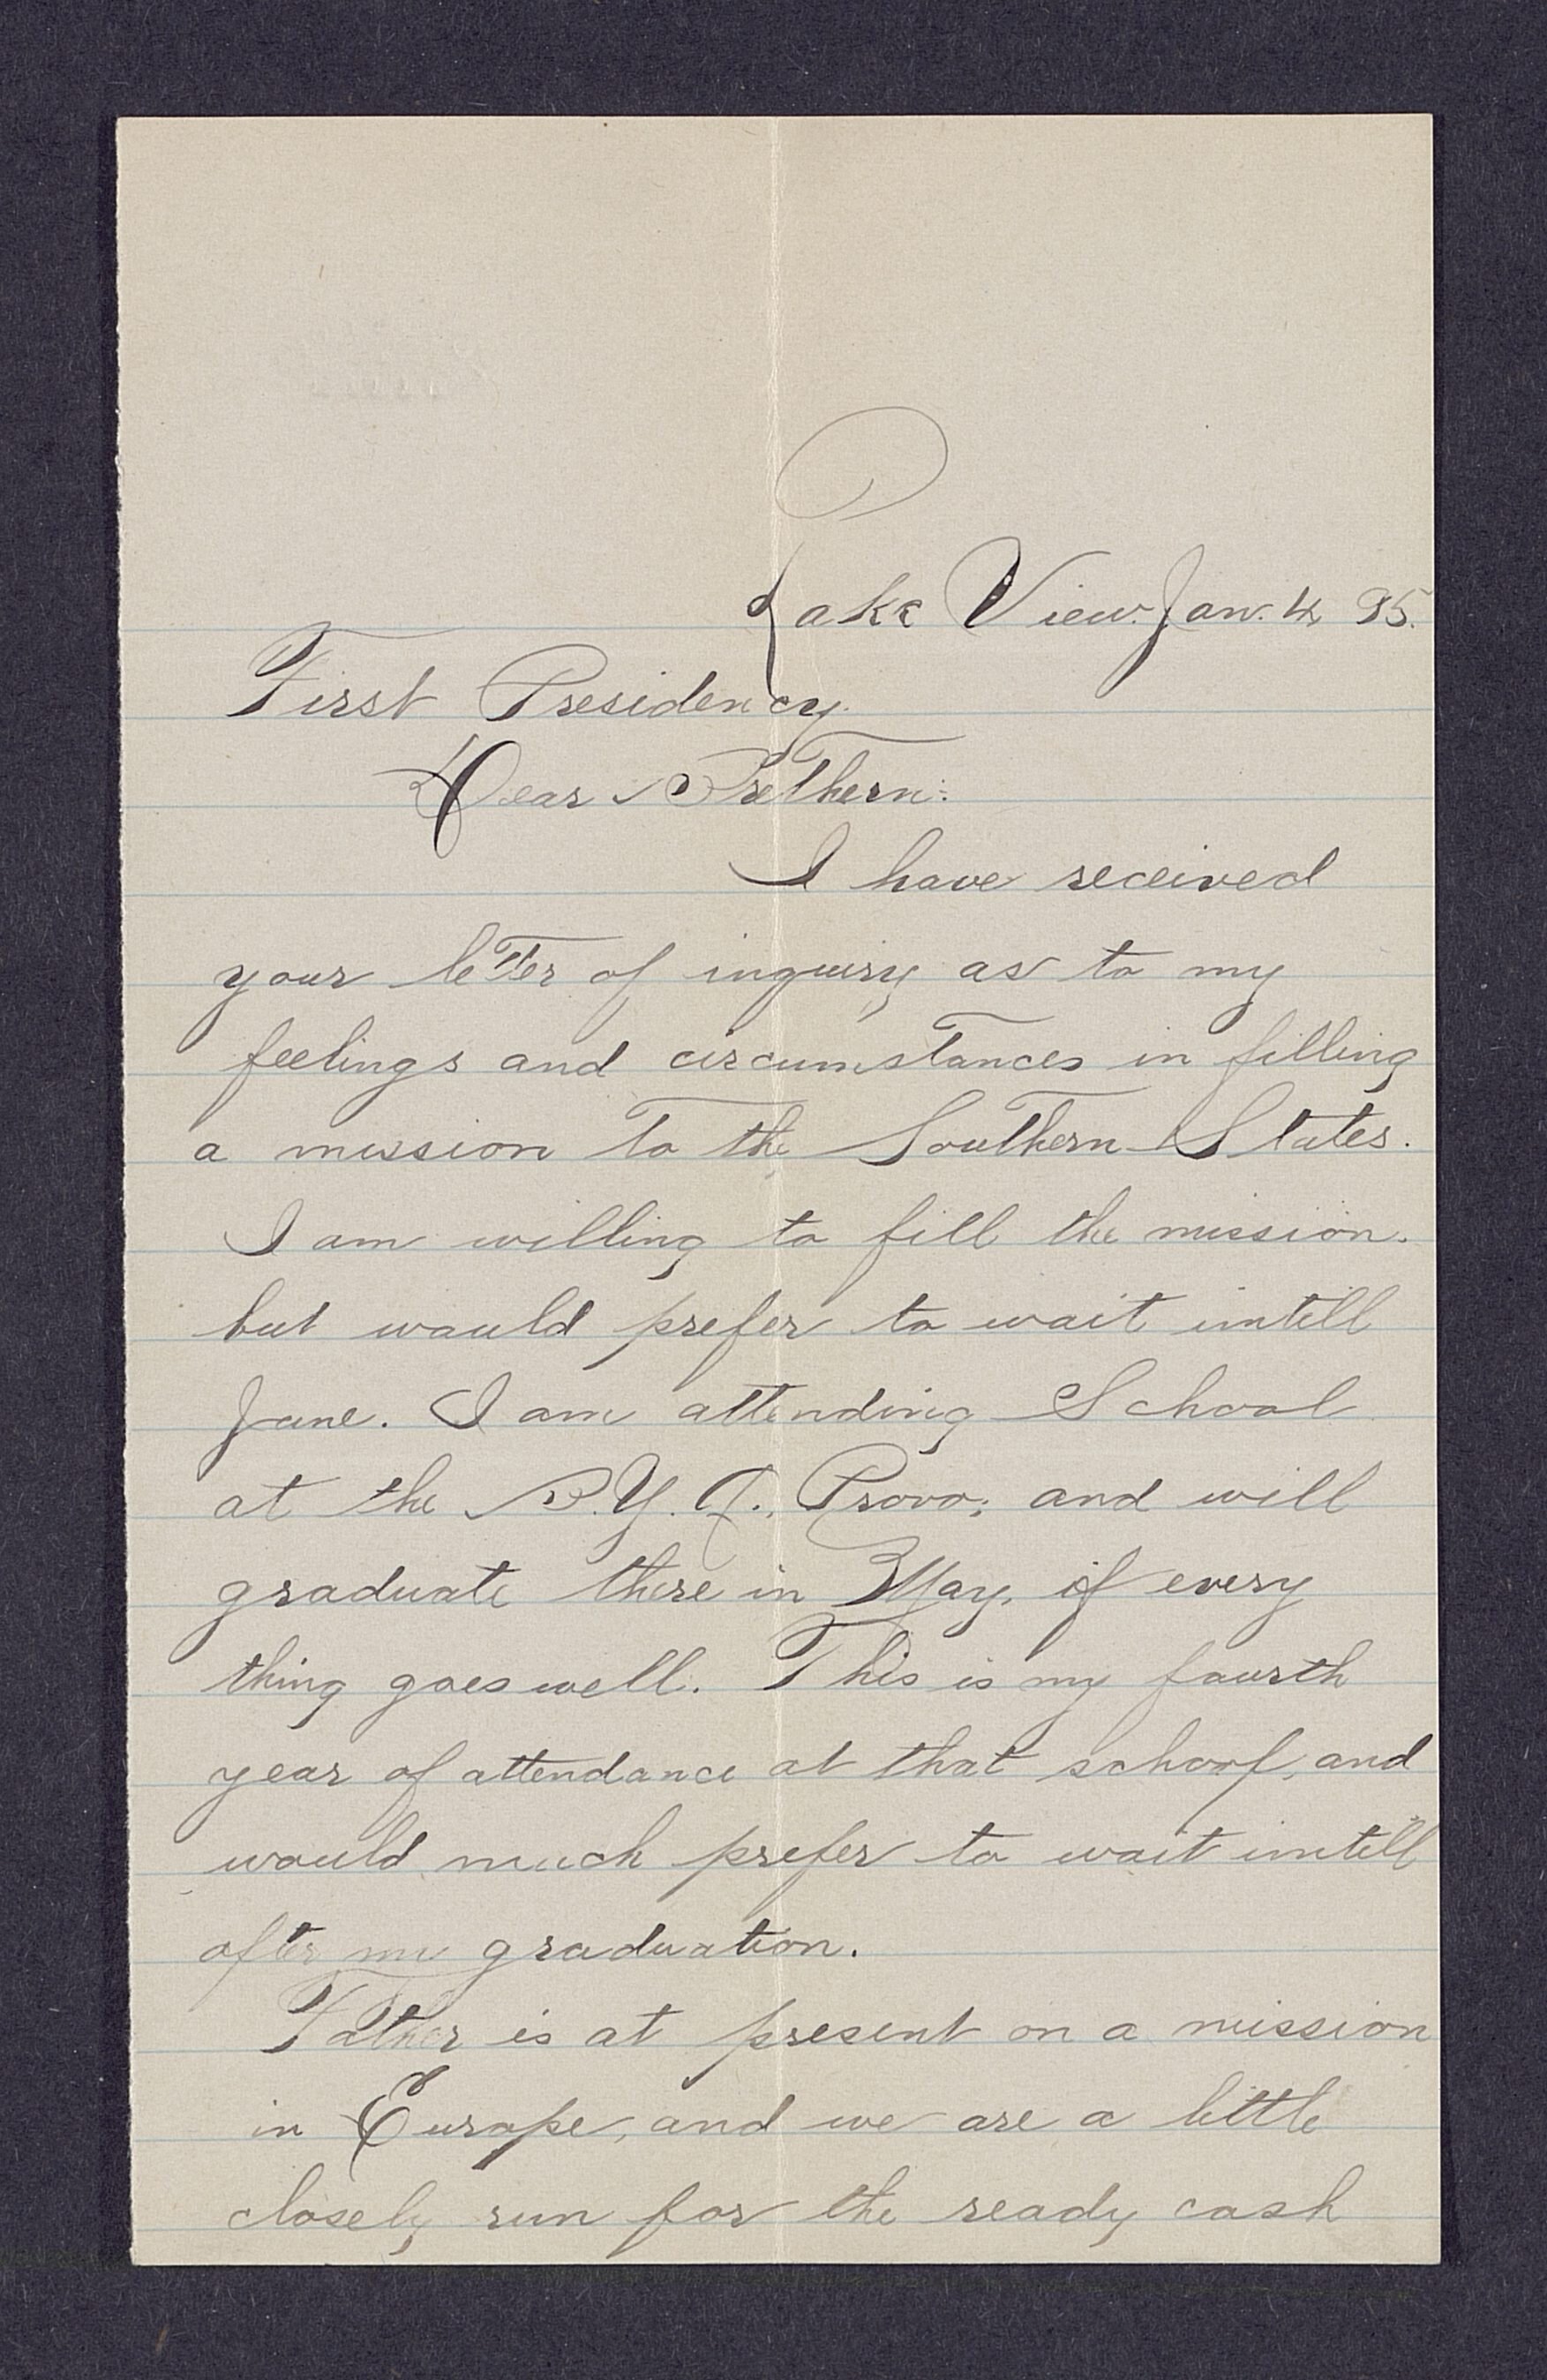 Lake View. Jan. 4, 95.
First Presidency.
Dear Brethern:
I have received
your letter of inquiry as to my
feelings and circumstances in filling
a mission to the Southern States.
I am willing to fill the mission.
but would prefer to wait untill
June. I am attending School
at the B.Y.A., Provo; and will
graduate there in May, if every
thing goes well. This is my fourth
year of attendance at that school, and
would much prefer to wait untill
after my graduation.
Father is at present on a mission
in Europe, and we are a little
closely run for the ready cash